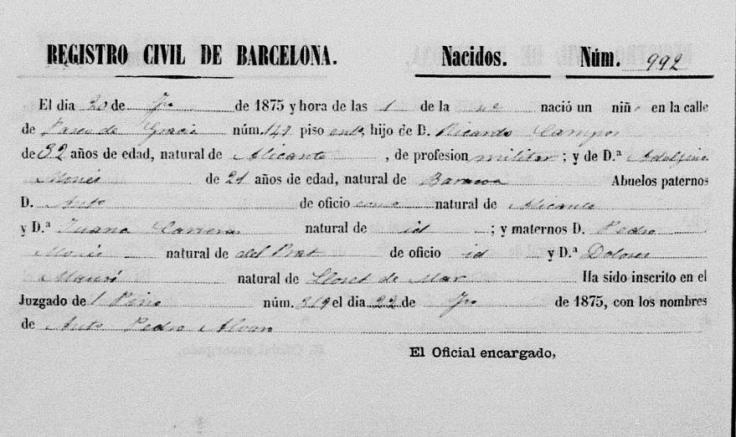 REGISTRO CIVIL DE BARCELONA. Nacidos. Núm. 992
El dia 20 de de 1875 y hora de las 1 de la nació un niño en la calle
de Paseo de Gracia núm. 147 piso entº, hijo de D. Ricardo Campos
de 32 años de edad, natural de Alicante, de profesion militar; y de D.ª Adelfina
de 21 años de edad, natural de Baracoa Abuelos paternos
D. Antº de oficio natural de Alicante
y D.ª Juana Carreras natural de id; y maternos D. Pedro
natural de del Prat de oficio id y D.ª Dolores
natural de Lloret de Mar Ha sido inscrito en el
Juzgado de l Pino núm. 319 el dia 22 de de 1875, con los nombres
de Antº Pedro Alvaro
El Oficial encargado,